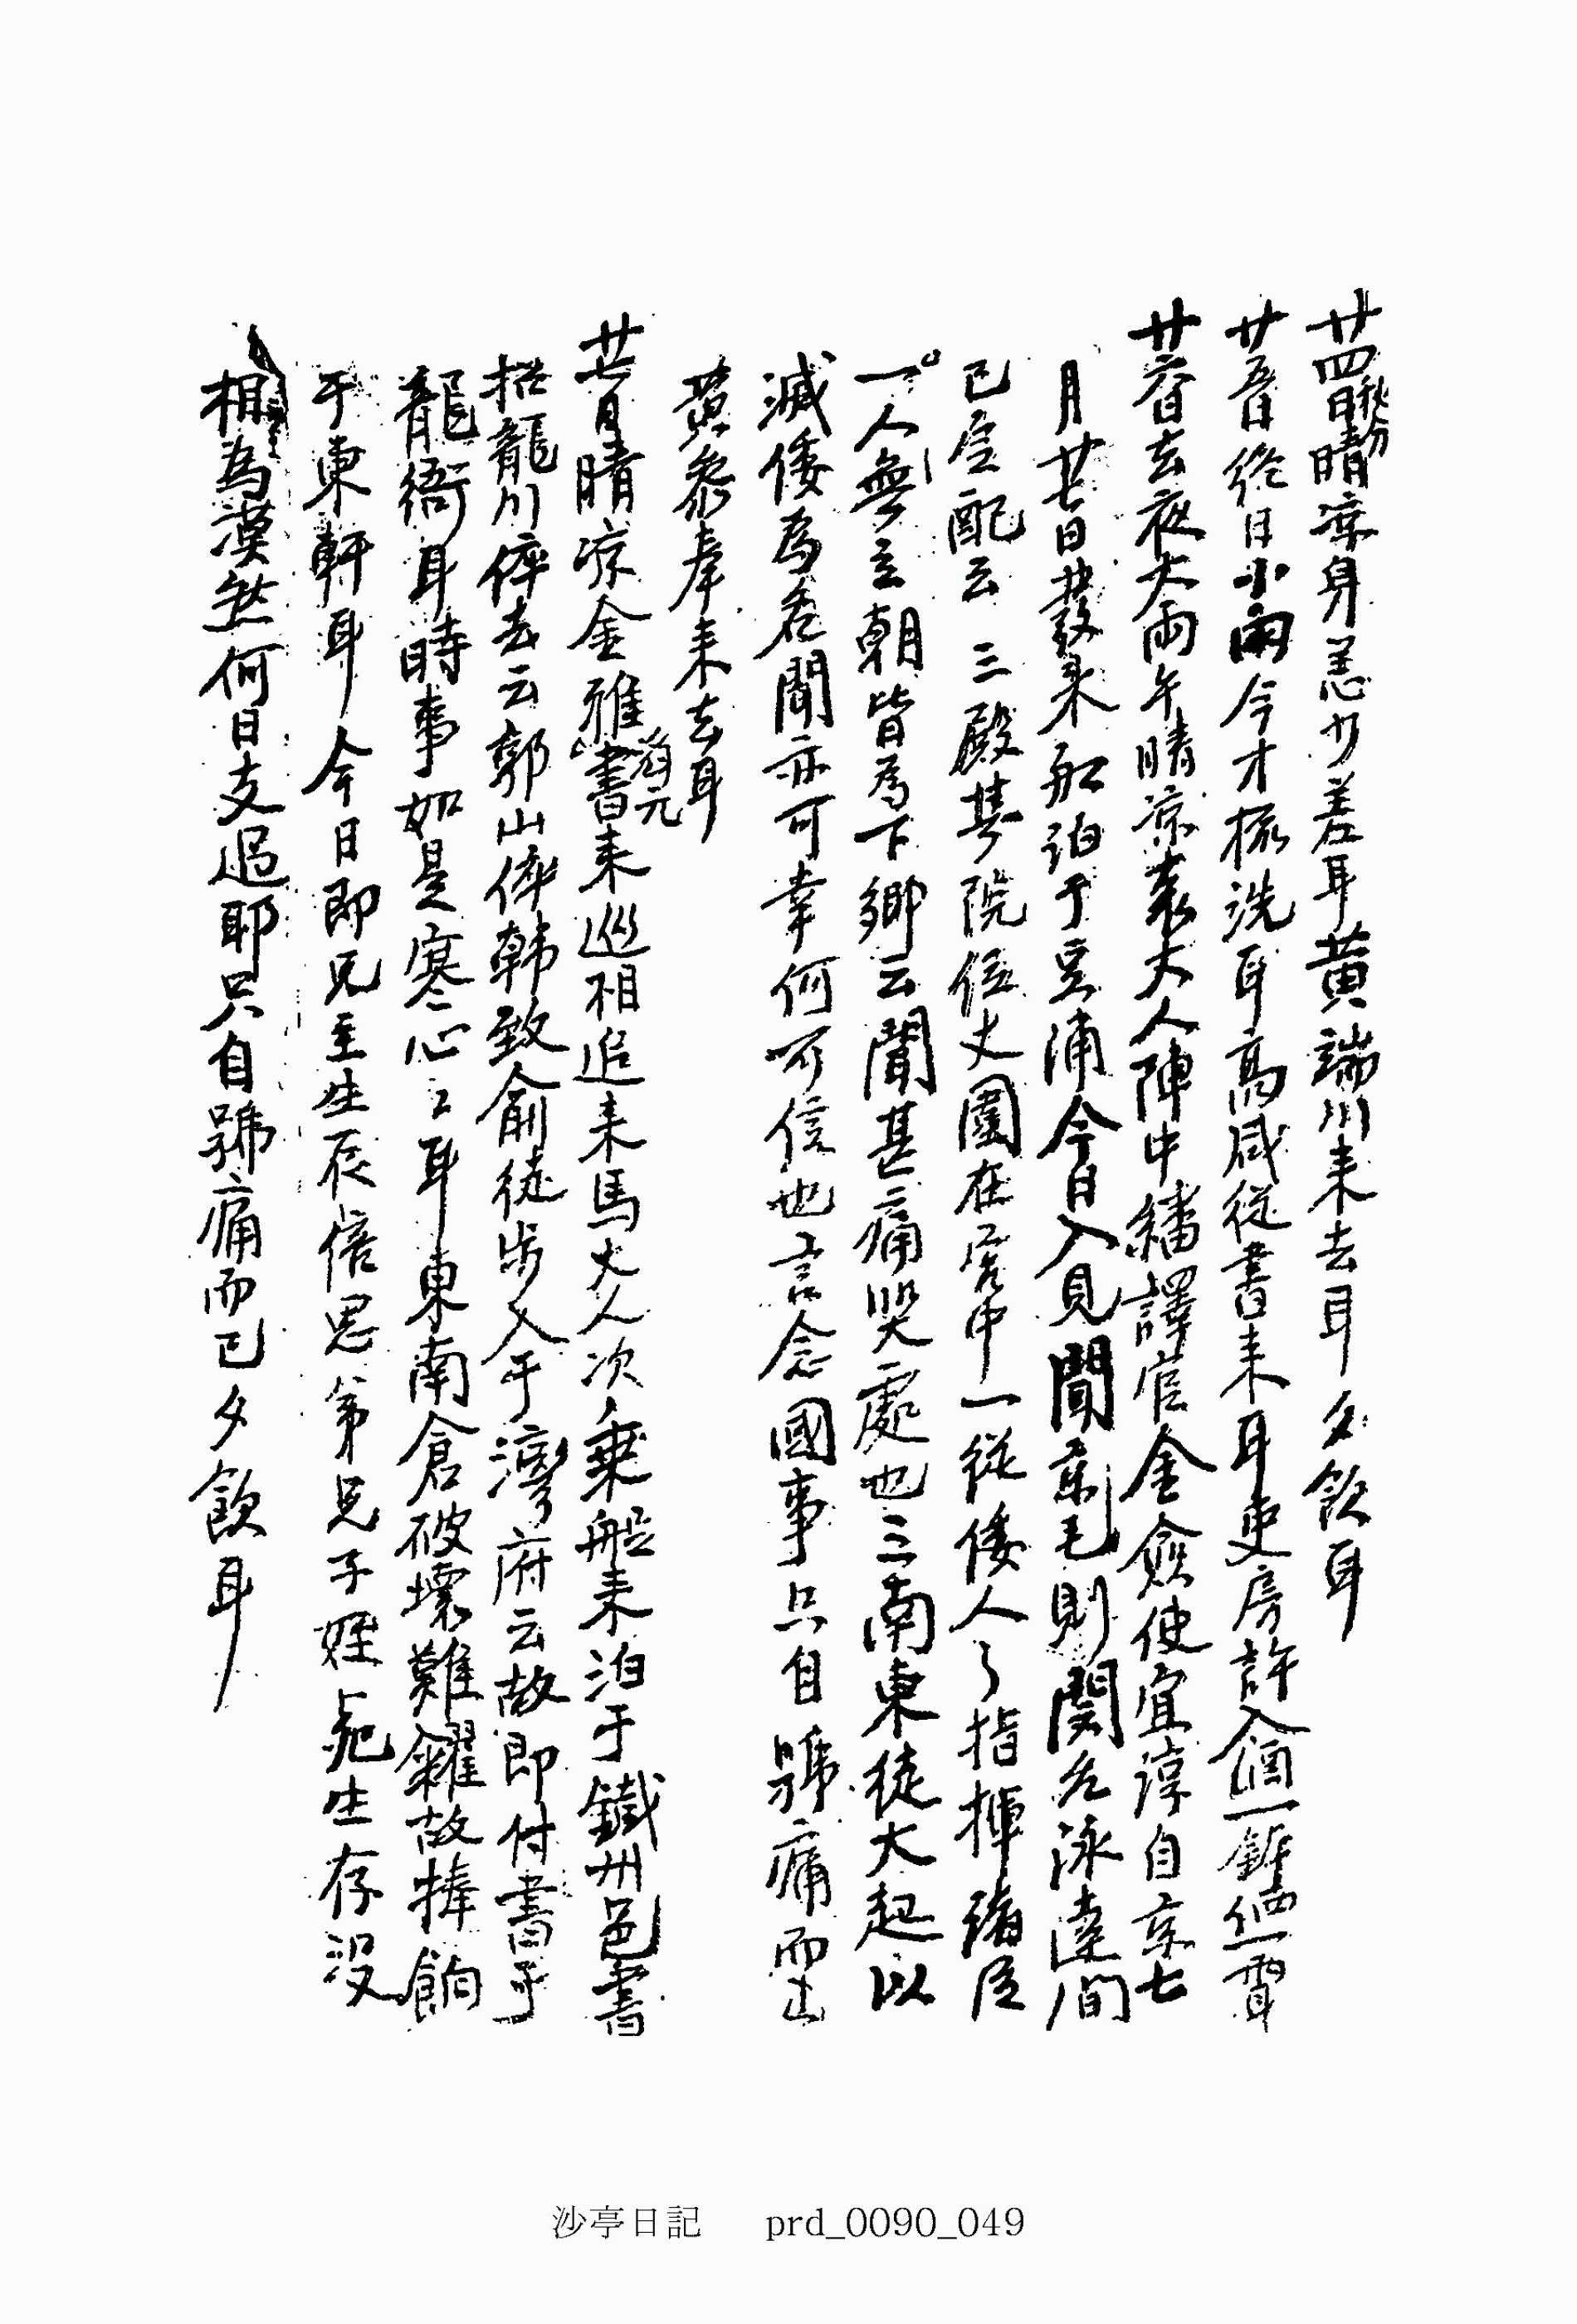 廿四日晴凉身恙少差耳黃端川来去耳夕飮耳
秋分
廿五日終日小雨今才梳洗耳高咸從書来耳吏房許入
廿六日去夜大雨午晴凉袁大人陣中繙譯官金僉使宜淳自京七
月廿七日發来船泊于豆浦今日入見聞京毛則閔元泳達間
已定配云 三殿其院位大圍在宮中一從倭人之指揮諸臣
一人無立朝皆爲下鄉云聞甚痛哭處也三南東徒大起以
滅倭爲名聞亦可幸何可信也言念國事只自號痛而已
黃參奉来去耳
廿七日晴凉金雅書来巡相追来馬大人次乘船来泊于鐵州邑書
有元
招龍川倅去云郭山倅韓致兪徒步入于灣府云故即付書于
龍衙耳時事如是寒心〻耳東南倉破壞難糴故捧餉
于東軒耳今日即兄主生辰倍思弟兄子姪死生存没
相爲漠然何日支過耶只自號痛而已夕飮耳
沙亭日記 prd_0090_049